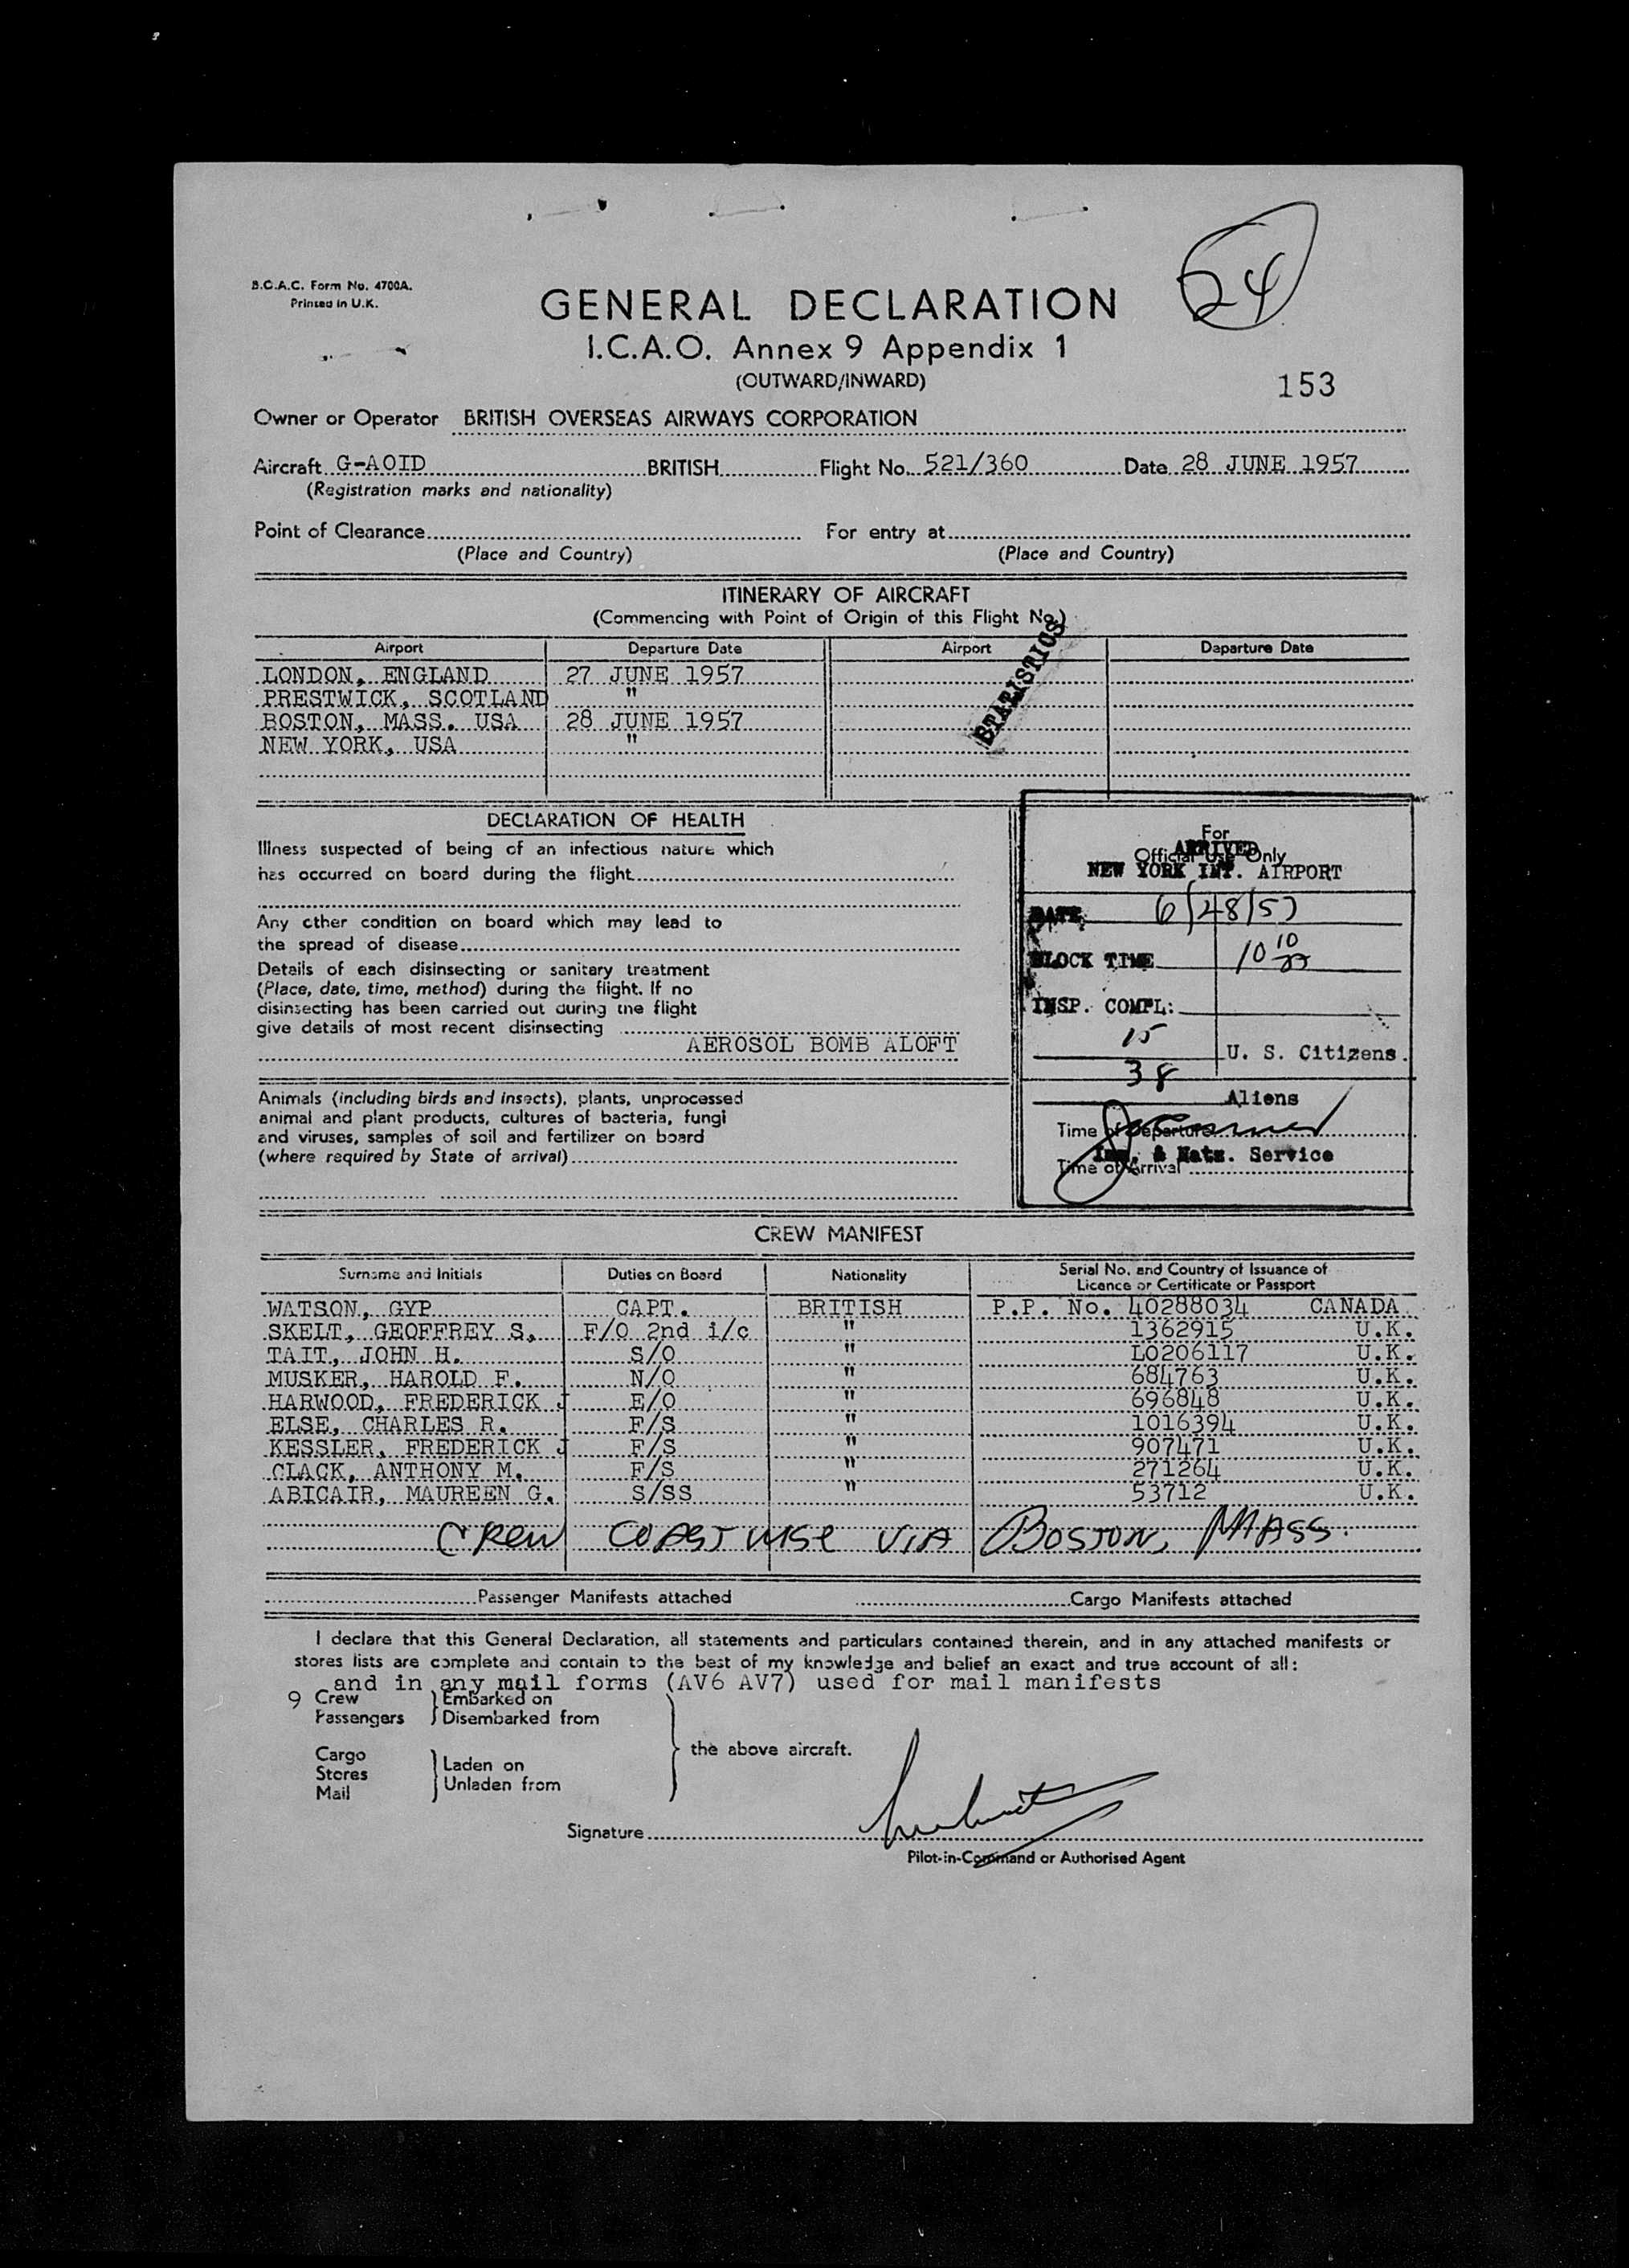 24
B.O.A.C. Form No. 4700A.
Printed in U.K.
GENERAL DECLARATION
I.C.A.O. Annex 9 Appendix 1
(OUTWARD/INWARD)
153
Owner or Operator BRITISH OVERSEAS AIRWAYS CORPORATION
Aircraft G-AOID BRITISH Flight No. 521/360 Date 28 JUNE 1957
(Registration marks and nationality)
Point of Clearance For entry at
(Place and Country) (Place and Country)
ITINERARY OF AIRCRAFT
(Commencing with Point of Origin of this Flight No.)
STATISTICS
Airport Departure Date Airport Departure Date
LONDON, ENGLAND 27 JUNE 1957
PRESTWICK, SCOTLAND "
BOSTON, MASS. USA 28 JUNE 1957
NEW YORK, USA "
DECLARATION OF HEALTH
Illness suspected of being of an infectious nature which
has occurred on board during the flight
Any other condition on board which may lead to
the spread of disease
Details of each disinsecting or sanitary treatment
(Place, date, time, method) during the flight. If no
disinsecting has been carried out during the flight
give details of most recent disinsecting
AEROSOL BOMB ALOFT
Animals (including birds and insects), plants, unprocessed
animal and plant products, cultures of bacteria, fungi
and viruses, samples of soil and fertilizer on board
(where required by State of arrival)
For
Official Use Only
ARRIVED
NEW YORK INT. AIRPORT
DATE 6/28/57
BLOCK TIME 10 10
INSP. COMPL:
15 U. S. Citizens
38 Aliens
Time of Departure
Imm. & Natz. Service
Time of Arrival
CREW MANIFEST
Surname and Initials Duties on Board Nationality Serial No. and Country of Issuance of
Licence or Certificate or Passport
WATSON, GYP CAPT. BRITISH P.P. No. 40288034 CANADA
SKELT, GEOFFREY S. F/O 2nd i/c " 1362915 U.K.
TAIT, JOHN H. S/O " L0206117 U.K.
MUSKER, HAROLD F. N/O " 684763 U.K.
HARWOOD, FREDERICK J E/O " 696848 U.K.
ELSE, CHARLES R. F/S " 1016394 U.K.
KESSLER, FREDERICK J F/S " 907471 U.K.
CLACK, ANTHONY M. F/S " 271264 U.K.
ABICAIR, MAUREEN G. S/SS " 53712 U.K.
CREW COASTWISE VIA BOSTON, MASS.
Passenger Manifests attached Cargo Manifests attached
I declare that this General Declaration, all statements and particulars contained therein, and in any attached manifests or
stores lists are complete and contain to the best of my knowledge and belief an exact and true account of all:
and in any mail forms (AV6 AV7) used for mail manifests
9 Crew Embarked on
Passengers Disembarked from
the above aircraft.
Cargo
Stores Laden on
Mail Unladen from
Signature
Pilot-in-Command or Authorised Agent